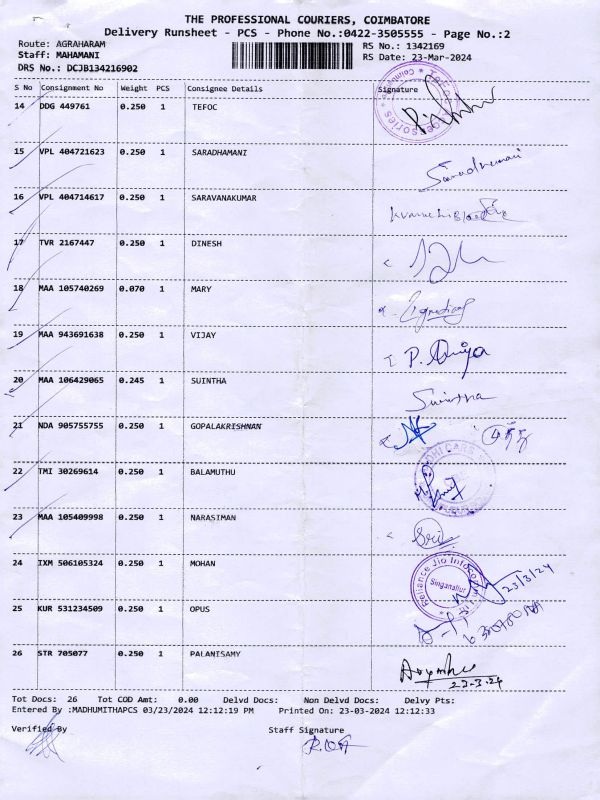 THE PROFESSIONAL COURIERS, COIMBATORE
Delivery Runsheet - PCS - Phone No.:0422-3505555 - Page No.:2
Route: AGRAHARAM RS No.: 1342169
Staff: MAHAMANI RS Date: 23-Mar-2024
DRS No.: DCJB134216902
S No Consignment No Weight PCS Consignee Details Signature
14 DDG 449761 0.250 1 TEFOC
15 VPL 404721623 0.250 1 SARADHAMANI
Saradhamani
16 VPL 404714617 0.250 1 SARAVANAKUMAR
17 TVR 2167447 0.250 1 DINESH
18 MAA 105740269 0.070 1 MARY
19 MAA 943691638 0.250 1 VIJAY
P.
20 MAA 106429065 0.245 1 SUINTHA
Suintha
21 NDA 905755755 0.250 1 GOPALAKRISHNAN
22 TMI 30269614 0.250 1 BALAMUTHU
23 MAA 105409998 0.250 1 NARASIMAN
Sri
24 IXM 506105324 0.250 1 MOHAN
Reliance Jio Infoco
Singanallur
23/3/24
25 KUR 531234509 0.250 1 OPUS
26 STR 705077 0.250 1 PALANISAMY
23.3.24
Tot Docs: 26 Tot COD Amt: 0.00 Delvd Docs: Non Delvd Docs: Delvy Pts:
Entered By :MADHUMITHAPCS 03/23/2024 12:12:19 PM Printed On: 23-03-2024 12:12:33
Verified By Staff Signature